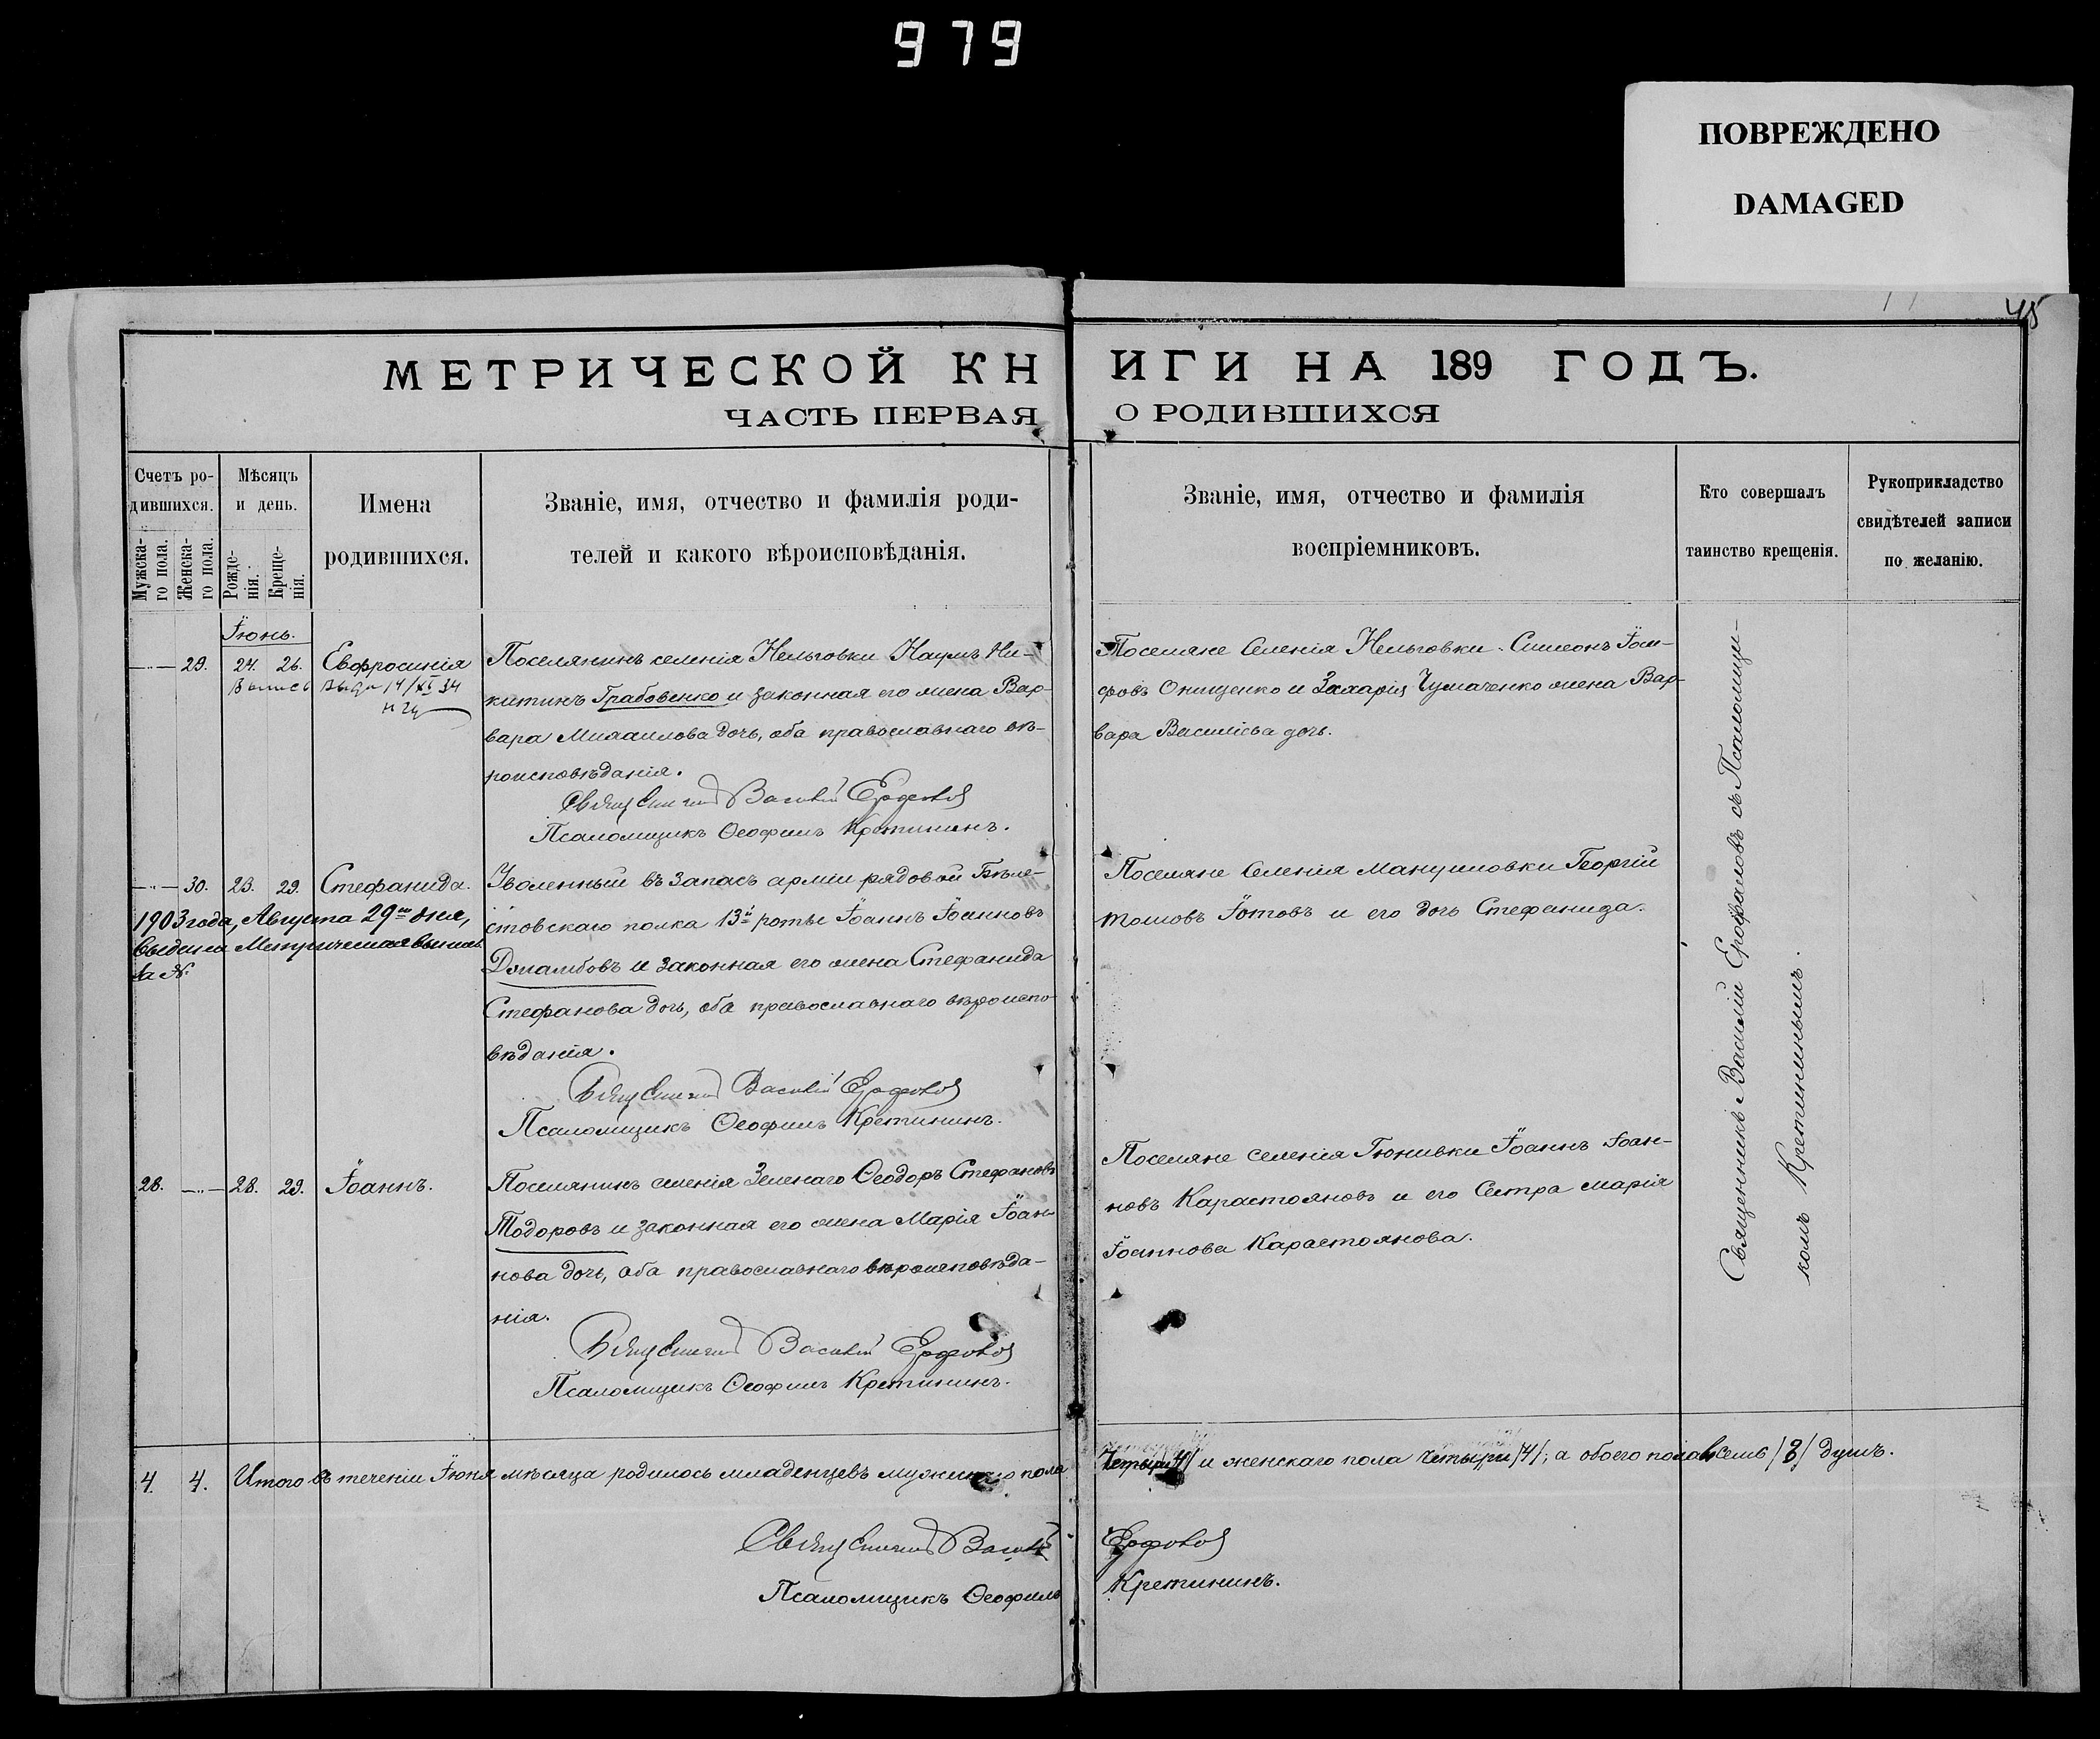 979
ПОВРЕЖДЕНО
DAMAGED
45
МЕТРИЧЕСКОЙ КНИГИ НА 189 ГОДЪ.
ЧАСТЬ ПЕРВАЯ О РОДИВШИХСЯ
Счетъ ро-
дившихся.
Мужска-
го пола.
Женска-
го пола.
Мѣсяцъ
и день.
Рожде-
нія.
Креще-
нія.
Имена
родившихся.
Званіе, имя, отчество и фамилія роди-
телей и какого вѣроисповѣданія.
Званіе, имя, отчество и фамилія
воспріемниковъ.
Кто совершалъ
таинство крещенія.
Рукоприкладство
свидѣтелей записи
по желанію.
Іюнь.
29. 24. 26. Евфросинія
Выпись выдн 14/XI 34
Поселянинъ селенія Нельговки Наумъ Ни-
китинъ Грабовенко и законная его жена Вар-
вара Михаилова дочь, оба православнаго вѣ-
роисповѣданія.
Священникъ Василій
Псаломщикъ Ѳеофилъ Кретининъ.
Поселяне Селенія Нельговки Симеонъ Іоси-
фовъ Онищенко и Захарія Чумаченко жена Вар-
вара Василіева дочь.
30. 23. 29. Стефанида.
1903 года, Августа 29го дня,
выдана Метрическая выпись
за №
Уволенный въ Запасъ арміи рядовой
стовскаго полка 13й роты Іоаннъ Іоанновъ
и законная его жена Стефанида
Стефанова дочь, оба православнаго вѣроиспо-
вѣданія.
Священникъ Василій
Псаломщикъ Ѳеофилъ Кретининъ.
Поселяне Селенія Мануиловки Георгій
Іотовъ и его дочь Стефанида.
28. 28. 29. Іоаннъ.
Поселянинъ селенія Зеленаго Ѳеодоръ Стефановъ
Тодоровъ и законная его жена Марія Іоан-
нова дочь, оба православнаго вѣроисповѣда-
нія.
Священникъ Василій
Псаломщикъ Ѳеофилъ Кретининъ.
Поселяне селенія Гюнивки Іоаннъ Іоан-
новъ Карастояновъ и его Сестра Марія
Іоаннова Карастоянова.
Священникъ Василій Ерофаловъ съ Псаломщи-
комъ Кретининымъ.
4. 4. Итого въ теченіи Іюня мѣсяца родилось младенцевъ мужскаго пола Четыри /4/ и женскаго пола четыри /4/; а обоего пола /8/ душъ.
Священникъ Василій
Псаломщикъ Ѳеофилъ Кретининъ.